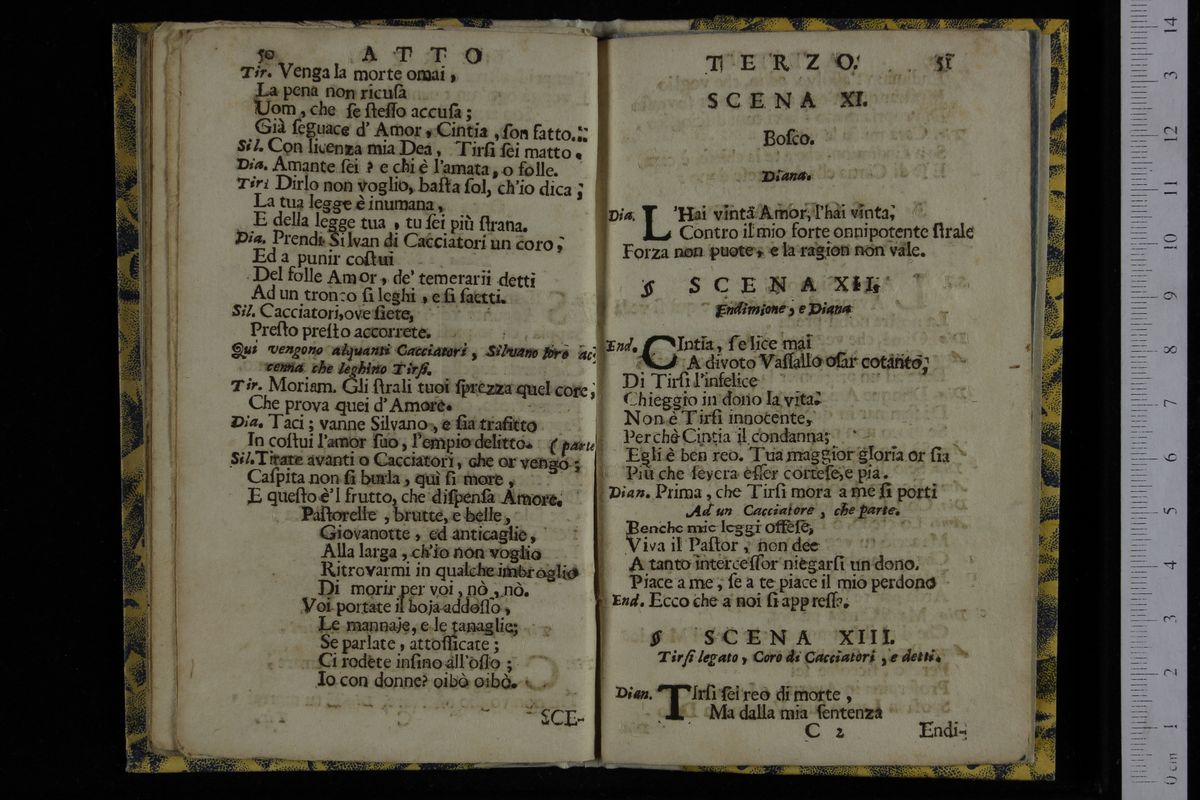 50 ATTO
Tir. Venga la morte omai,
La pena non ricuſa
Uom, che ſe ſteſſo accuſa;
Già ſeguace d' Amor, Cintia, ſon fatto.
Sil. Con licenza mia Dea, Tirſi ſei matto.
Dia. Amante ſei? e chi è l'amata, o folle.
Tiri Dirlo non voglio, baſta ſol, ch'io dica;
La tua legge è inumana,
E della legge tua, tu ſei più ſtrana.
Dia. Prendi Silvan di Cacciatori un coro,
Ed a punir coſtui
Del folle Amor, de' temerarii detti
Ad un tronco ſi leghi, e ſi ſaetti.
Sil. Cacciatori, ove ſiete,
Preſto preſto accorrete.
Qui vengono alquanti Cacciatori, Silvano loro ac-
cenna che leghino Tirſi.
Tir. Moriam. Gli ſtrali tuoi ſprezza quel core,
Che prova quei d'Amore.
Dia. Taci; vanne Silvano, e ſia trafitto
In coſtui l'amor ſuo, l'empio delitto. (parte
Sil. Tirate avanti o Cacciatori, che or vengo;
Caſpita non ſi burla, qui ſi more,
E queſto è'l frutto, che diſpenſa Amore.
Paſtorelle, brutte, e belle,
Giovanotte, ed anticaglie,
Alla larga, ch'io non voglio
Ritrovarmi in qualche imbroglio
Di morir per voi, nò, nò.
Voi portate il boja addoſſo,
Le mannaje, e le tanaglie;
Se parlate, attoſſicate;
Ci rodete inſino all'oſſo;
Io con donne? oibò oibò.
SCE-
TERZO. 51
SCENA XI.
Boſco.
Diana.
Dia. L'Hai vinta Amor, l'hai vinta;
Contro il mio forte onnipotente ſtrale
Forza non puote, e la ragion non vale.
SCENA XII.
Endimione, e Diana
End. CIntia, ſe lice mai
A divoto Vaſſallo oſar cotanto,
Di Tirſi l'infelice
Chieggio in dono la vita.
Non è Tirſi innocente,
Perchè Cintia il condanna;
Egli è ben reo. Tua maggior gloria or ſia
Più che ſevera eſſer corteſe, e pia.
Dian. Prima, che Tirſi mora a me ſi porti
Ad un Cacciatore, che parte.
Benche mie leggi offeſe,
Viva il Paſtor, non dee
A tanto interceſſor niegarſi un dono.
Piace a me, ſe a te piace il mio perdono
End. Ecco che a noi ſi appreſſa.
SCENA XIII.
Tirſi legato, Coro di Cacciatori, e detti.
Dian. TIrſi ſei reo di morte,
Ma dalla mia ſentenza
C 2 Endi-